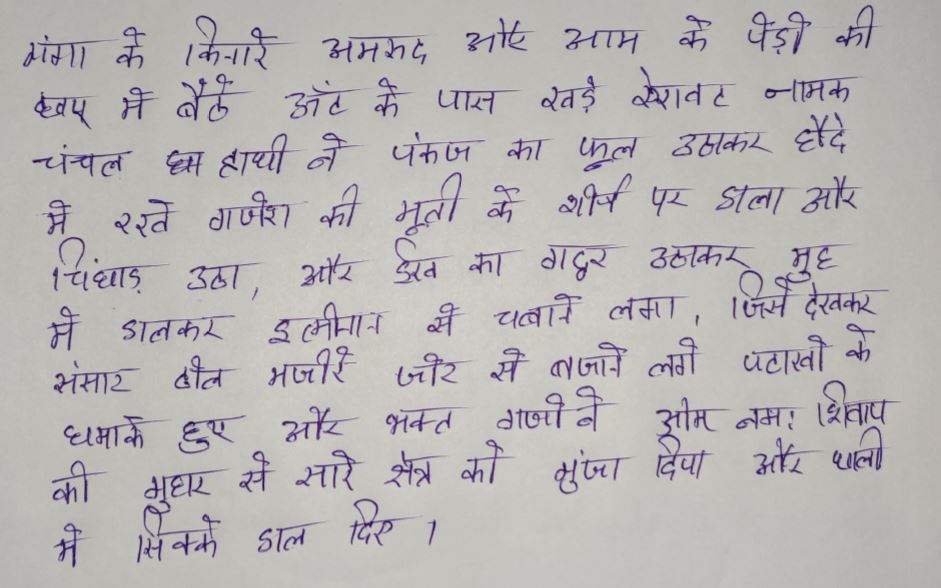 गंगा के किनारे अमरुद और आम के पेड़ो की
छाप में बैठे ऊँट के पास खड़े ऐरावट नामक
चंचल हाथी ने पंकज का फूल उठाकर हौदे
मे रखे गणेश की मूर्ती के शीर्ष पर डाला और
चिंघाड़ उठा, और ईख का गट्ठर उठाकर मुह
मे डालकर इत्मीमान से चबाने लगा, जिसे देखकर
संसार ढोल मजीरे जोर से बजाने लगे पटाखो के
धमाके हुए और भक्त गणो ने ओम नमः शिवाय
की गुहार से सारे क्षेत्र को गुंजा दिया और थाली
मे सिक्के डाल दिए ।